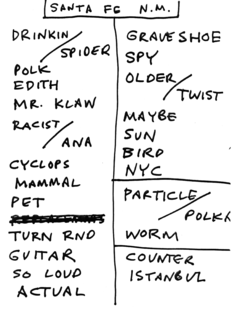 SANTA FE N.M.
DRINKIN
/SPIDER
POLK
EDITH
MR. KLAW
RACIST
/ANA
CYCLOPS
MAMMAL
PET
TURN RND
GUITAR
SO LOUD
ACTUAL
GRAVESHOE
SPY
OLDER
/TWIST
MAYBE
SUN
BIRD
NYC
PARTICLE
/POLKA
WORM
COUNTER
ISTANBUL